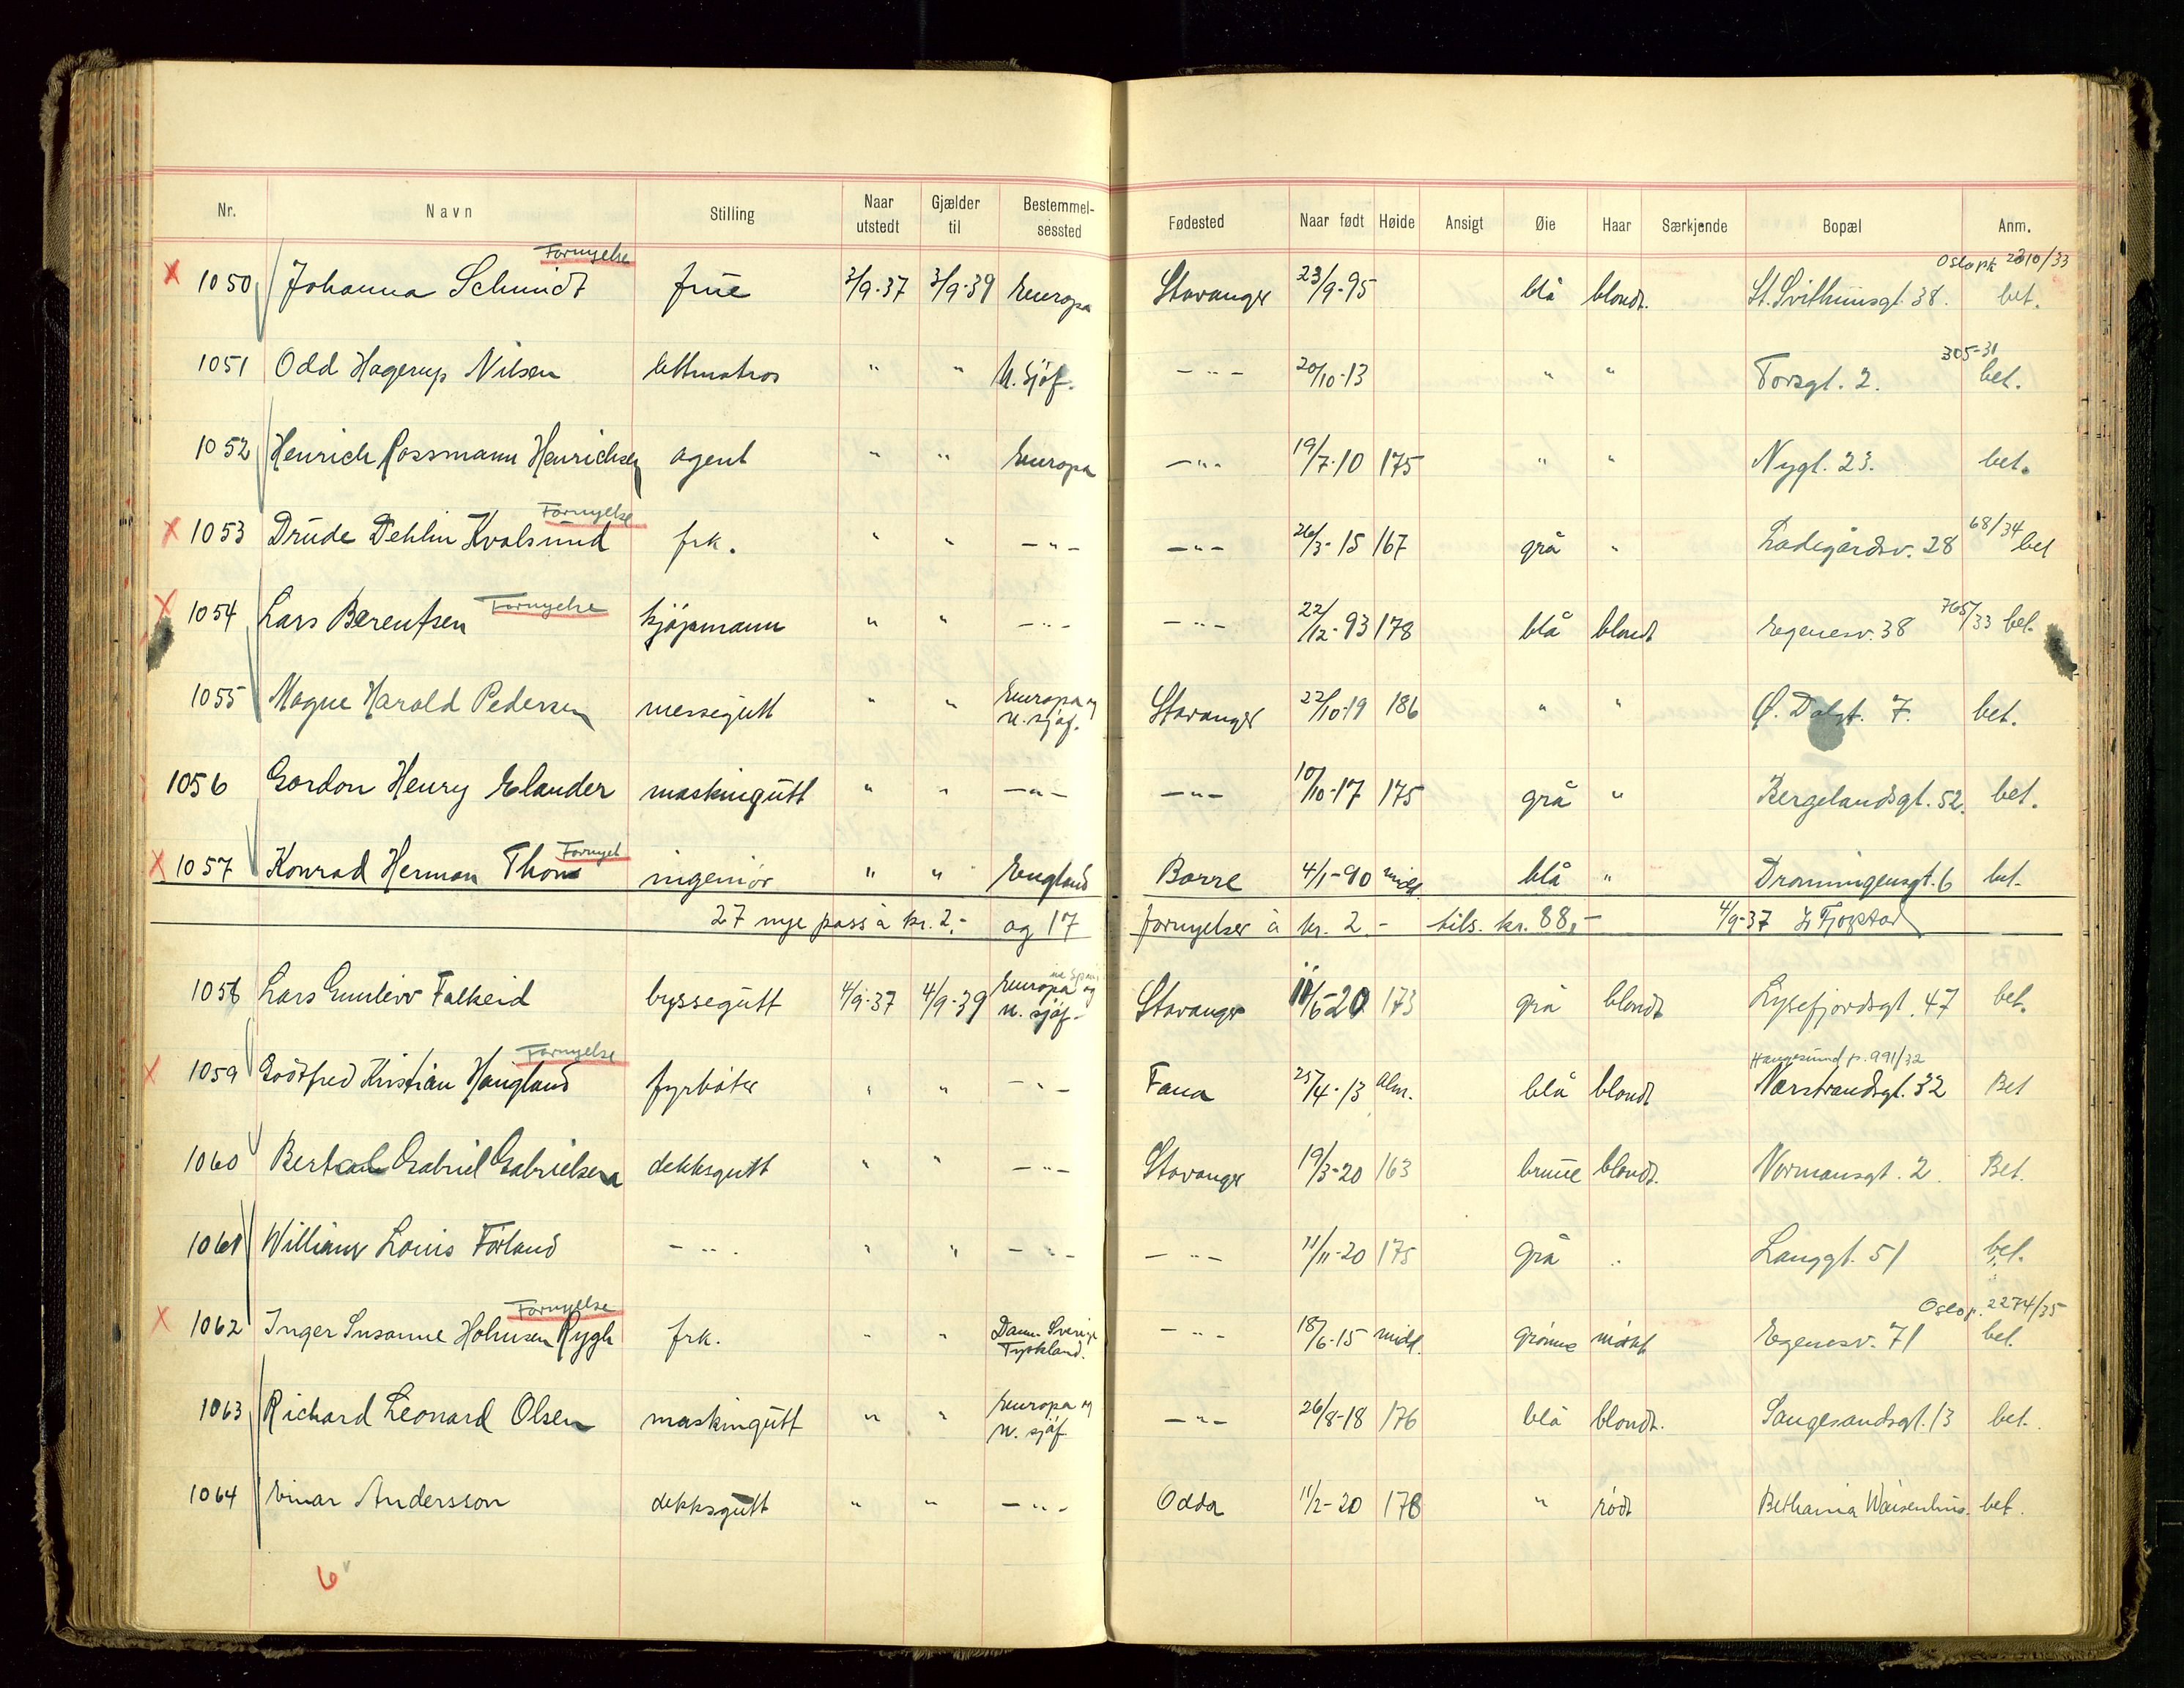 Nr. Navn Stilling Naar utstedt Gjælder til Bestemmelsessted Fødested Naar født Høide Ansigt Øie Haar Særkjende Bopæl Anm.
Fornyelse Oslo pk 2010/33
x 1050 Johanna Schmidt frue 3/9-37 3/9-39 Europa Stavanger 23/9-95 blå blondt. St. Svithunsgt. 38. bet.
305-31
1051 Odd Hagerup Nilsen lettmatros " " U. Sjøf. - " - 20/10-13 " " Torsgt. 2. bet.
1052 Henrich Rossmann Henrichsen agent " " Europa - " - 19/7-10 175 " " Nygt. 23. bet.
Fornyelse
x 1053 Drude Dehlin Kvalsund frk. " " - " - - " - 26/3-15 167 grå " Ladegårdsv. 28 68/34 bet
x 1054 Lars Berentsen Fornyelse kjøpmann " " - " - - " - 22/12-93 178 blå blondt Egenesv. 38 765/33 bet.
1055 Magne Harald Pedersen messegutt " " Europa og u. sjøf. Stavanger 22/10-19 186 " " Ø. Dalgt. 7. bet.
1056 Gordon Henry Elander maskingutt " " - " - - " - 10/10-17 175 grå " Bergelandsgt. 52. bet.
Fornyel
x 1057 Konrad Herman Thom ingeniør " " England Borre 4/1-90 midd. blå " Dronningensgt. 6 bet.
27 nye pass à kr. 2,- og 17 fornyelser à kr. 2.- tils. kr. 88,- 4/9-37
1058 Lars Gunleiv Falkeid byssegutt 4/9-37 4/9-39 Europa og u. sjøf. Stavanger 11/5-20 173 grå blondt Lysefjordsgt. 47 bet.
Fornyelse Haugesund p. 991/32
x 1059 Godtfred Kristian Haugland fyrbøter " " - " - Fana 25/4-13 alm. blå blondt Nørstrandsgt. 32 Bet
1060 Gabriel Gabrielsen dekksgutt " " - " - Stavanger 19/3-20 163 brune blondt. Normansgt. 2. Bet.
1061 William Louis Førland - " - " " - " - - " - 11/11-20 175 Grå " Langgt. 51 bet.
Fornyelse Oslo p. 2274/35
x 1062 Inger Susanne Holmsen Rygh frk. " " Danm. Sverige Tyskland. - " - 18/6-15 midd. grønne mørkt Egenesv. 71 bet.
1063 Richard Leonard Olsen maskingutt " " Europa og u. sjøf - " - 26/8-18 176 blå blondt. Sangesandsgt. 13 bet.
1064 Einar Andersson dekksgutt " " - " - Odda 11/2-20 178 " rødt Bethania Waisenhus. bet.
6